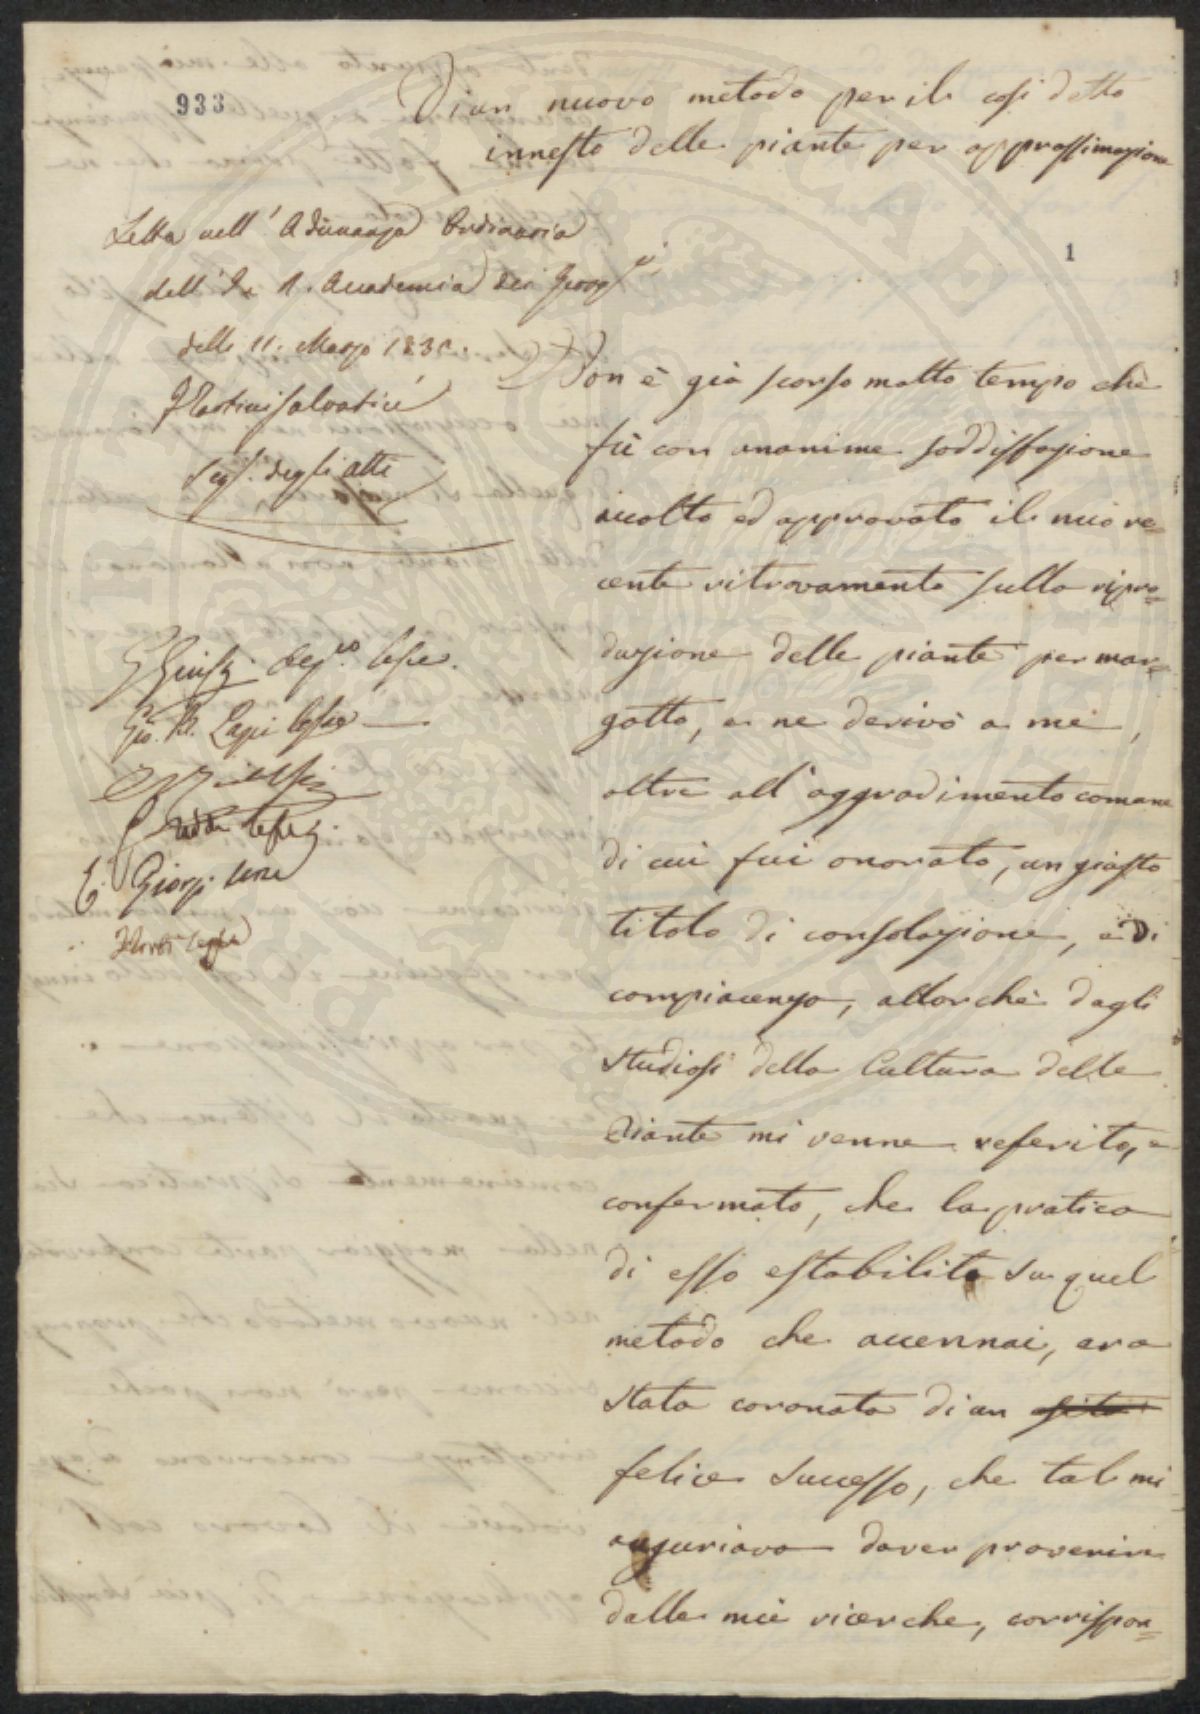 933
Di un nuovo metodo per il così detto
innesto delle piante per approssimazione
1
Letta nell' Adunanza Ordinaria
dell' I. e R. Accademia dei Georg.i
delli 11. Marzo 183
Seg. degli Atti
Giorgi
Non è già scorso molto tempo che
fù con unanime soddisfazione
accolto ed approvato il mio re=
cente ritrovamento sulla ripro=
duzione delle piante per mar=
gotto, e ne derivò a me,
oltre all' aggradimento comune
di cui fui onorato, un giusto
titolo di consolazione, e di
compiacenza, allor chè dagli
studiosi della Cultura delle
Piante mi venne referito, e
confermato, che la pratica
di esso estabilita su quel
metodo che accennai, era
stata coronata di un
felice successo, che tal mi
auguriava dover provenire
dalle mie ricerche, corrispon=